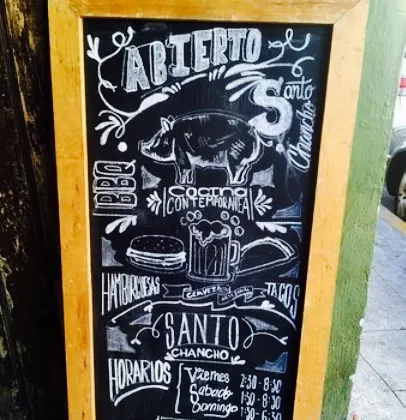 ABIERTO
Santo
Chancho
BBQ
COCINA
CONTEMPORANEA
HAMBURGUESAS
CERVEZA ARTESANAL
TACOS
SANTO
CHANCHO
HORARIOS
Viernes 2:30 - 8:30
Sabado 1:30 - 8:30
Domingo 1:30 - 6:30